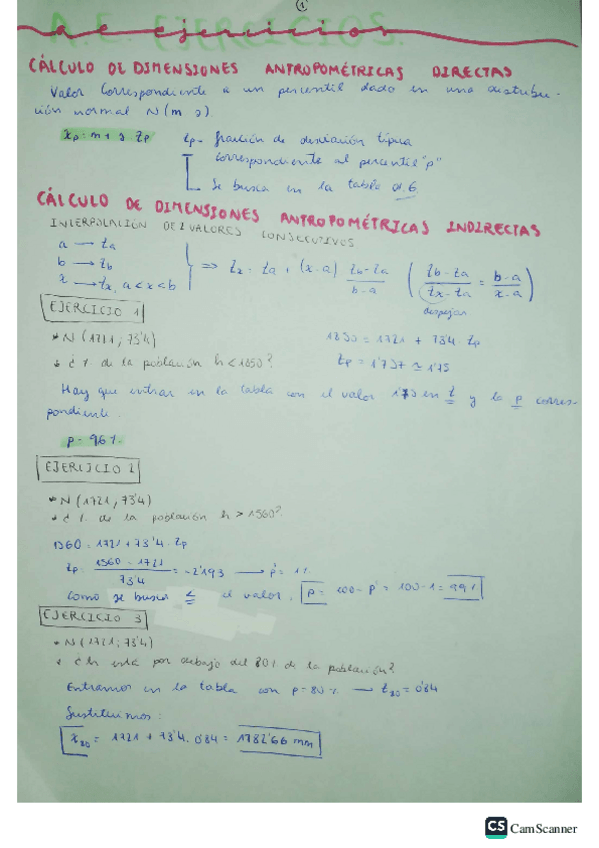 1
A.E. EJERCICIOS.
a e ejercicios
CÁLCULO DE DIMENSIONES ANTROPOMÉTRICAS DIRECTAS
Valor correspondiente a un percentil dado en una distribu-
ción normal N(m s).
xp = m + s zp
tp - fracción de desviación típica
correspondiente al percentil "p"
Se busca en la tabla
CÁLCULO DE DIMENSIONES ANTROPOMÉTRICAS INDIRECTAS
INTERPOLACIÓN DE 2 VALORES CONSECUTIVOS
a → ta
b → tb
x → tx, a<x<b
⇒ tx = ta + (x-a) tb-ta / b-a ( tb-ta / tx-ta = b-a / x-a )
despejar
EJERCICIO 1
* N (1721, 73'4)
* ¿% de la población h < 1850?
1850 = 1721 + 73'4 · zp
tp = 1'757 ≃ 1'75
Hay que entrar en la tabla con el valor 1'75 en t y la p corres-
pondiente.
p = 96%
EJERCICIO 2
* N (1721, 73'4)
* ¿% de la población h > 1560?
1560 = 1721 + 73'4 · zp
zp = 1560 - 1721 / 73'4 = -2'193 → p' = 1%
Como se busca ≤ el valor, p = 100 - p' = 100 - 1 = 99%
EJERCICIO 3
* N (1721, 73'4)
* ¿h está por debajo del 80% de la población?
Entramos en la tabla con p = 80% → t80 = 0'84
Sustituimos:
1721 + 73'4 · 0'84 = 1782'66 mm
CS CamScanner